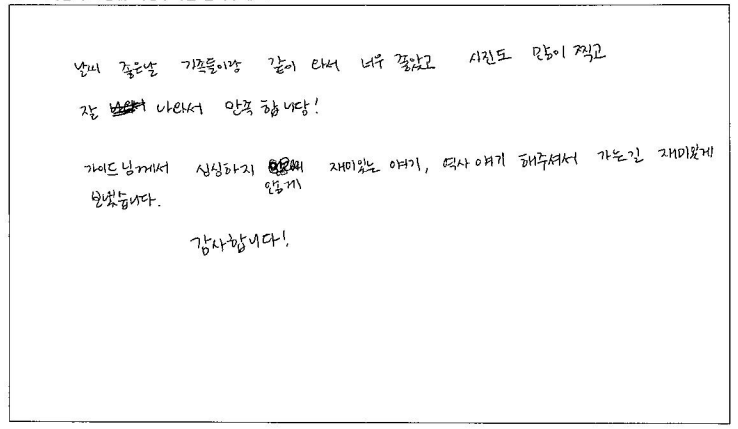 날씨 좋은날 가족들이랑 같이 타서 너무 좋았고 사진도 많이 찍고
잘 나와서 만족 합니당!
가이드님께서 심심하지 않게 재미있는 얘기, 역사 얘기 해주셔서 가는길 재미있게
보냈습니다.
감사합니다!